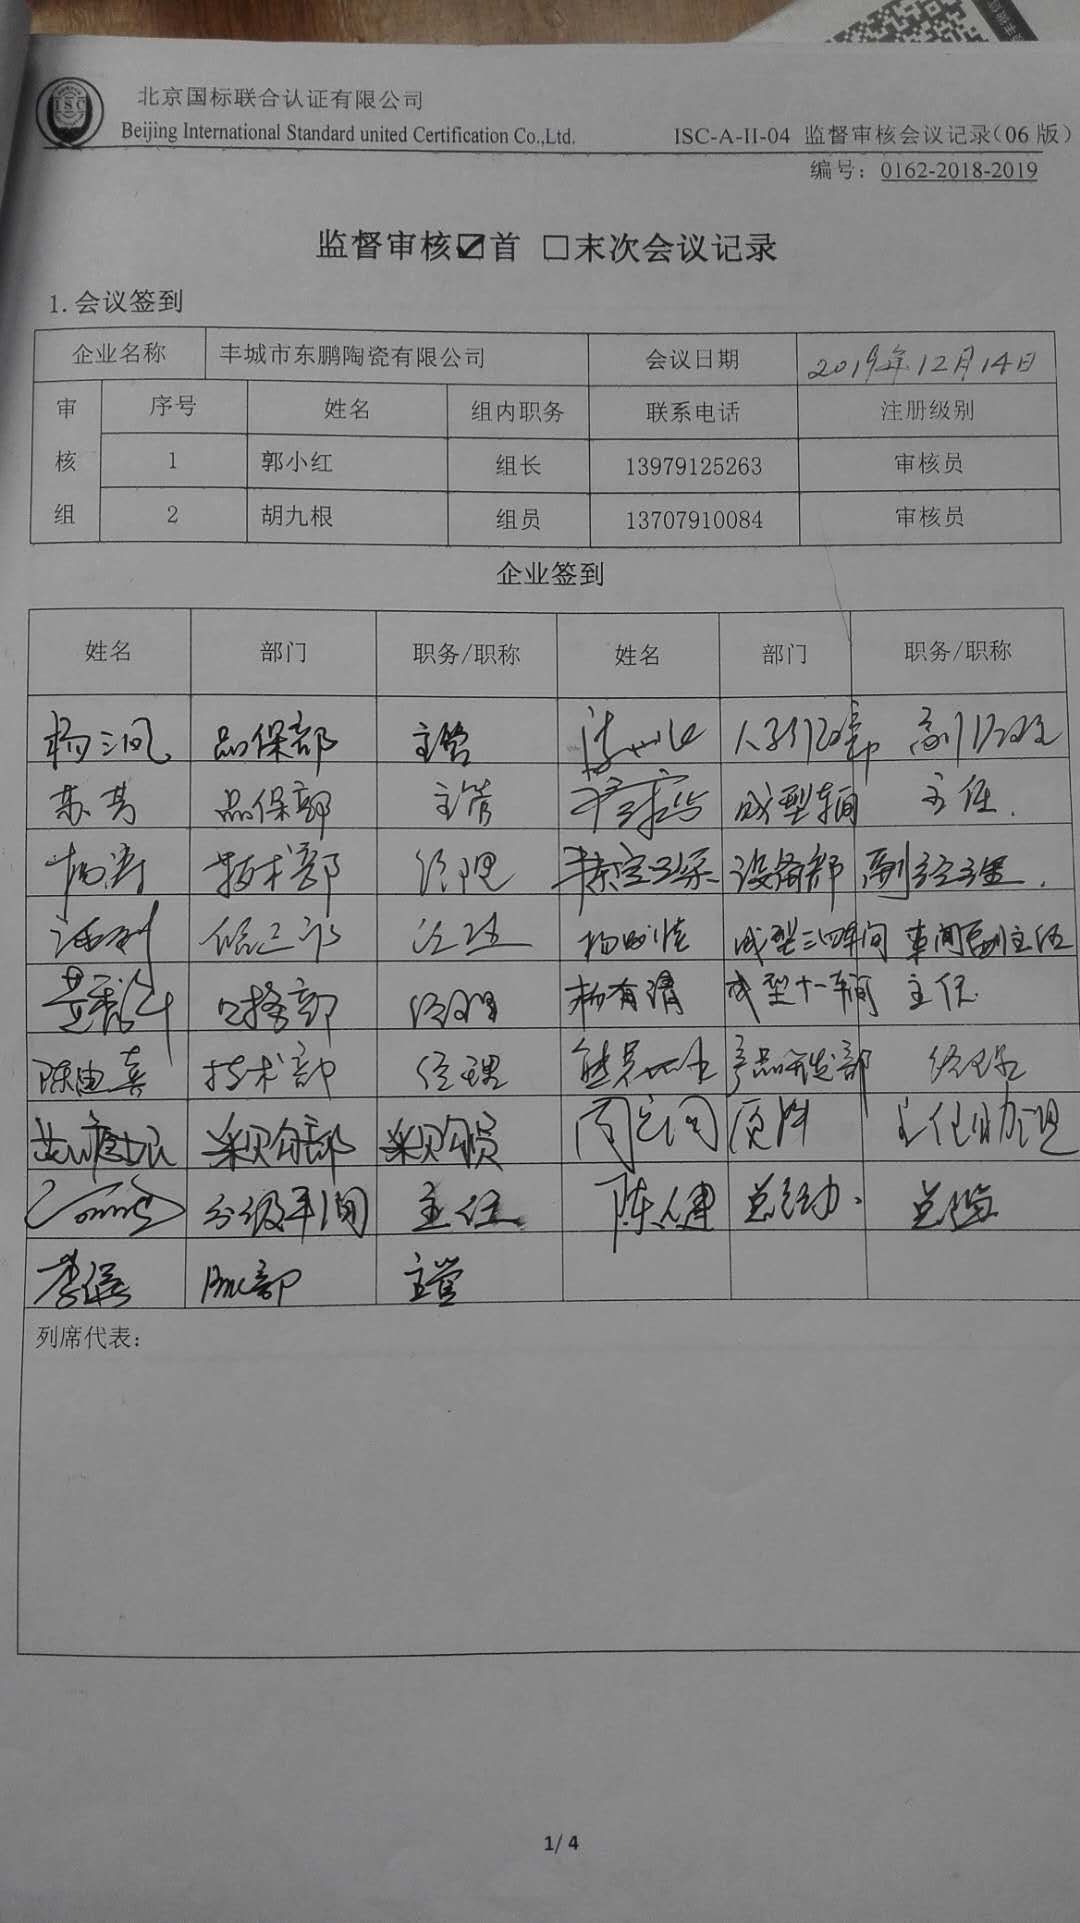 北京国标联合认证有限公司
Beijing International Standard united Certification Co.,Ltd.
ISC-A-II-04 监督审核会议记录(06 版)
编号: 0162-2018-2019
监督审核☑首 □末次会议记录
1.会议签到
企业名称 丰城市东鹏陶瓷有限公司 会议日期 2019年12月14日
审核组 序号 姓名 组内职务 联系电话 注册级别
1 郭小红 组长 13979125263 审核员
2 胡九根 组员 13707910084 审核员
企业签到
姓名 部门 职务/职称 姓名 部门 职务/职称
品保部 主管
苏芳 品保部 主管 成型车间 主任
杨涛 技术部 经理 设备部 副经理
经理 成型三四车间 车间副主任
经理 杨有清 成型十一车间 主任
陈建喜 技术部 经理 产品开发部 经理
采购部 采购员 原料 主任助理
分级车间 主任 陈人健 总经办 总监
主管
列席代表:
1/ 4